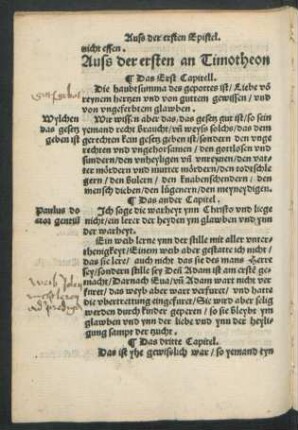 Auß der ersten Epistel.
nicht essen.
Auß der ersten an Timotheon
¶ Das Erst Capitell.
Die haubtsumma des gepottes ist/ Liebe võ
reynem hertzen vnd von guttem gewissen/ vnd
von vngeferbtem glawben.
Wylchen
das gesetz
geben ist
Wir wissen aber das/ das gesetz gut ist/ so sein
yemand recht braucht/ vñ weyß solchs/ das dem
gerechten kein gesetz geben ist/ sondern den vnge
rechten vnd vngehorsamen/ den gottlosen vnd
sundern/ den vnheyligen vñ vnreynen/ den vat-
ter mördern vnd mutter mördern/ den todtschle
gern/ den hulern/ den knabenschendern/ den
mensch dieben/ den lügenern/ den meyneydigen.
¶ Das ander Capitel.
Paulus do
ctor gentiũ
Ich sage die warheyt ynn Christo vnd liege
nicht/ ein lerer der heyden ym glawben vnd ynn
der warheyt.
Ein weib lerne ynn der stille mit aller vnter-
thenigkeyt/ Einem weib aber gestatte ich nicht/
das sie lere/ auch nicht das sie des mans Herre
sey/ sondern stille sey Deñ Adam ist am erstē ge-
macht/ Darnach Eua/ vñ Adam wart nicht ver
furet/ das weyb aber wart verfuret/ vnd hatte
die vbertrettung eingefuret/ Sie wird aber selig
werden durch kinder geperen/ so sie bleybt ym
glawben vnd ynn der liebe vnd ynn der heyli-
gung sampt der zucht.
¶ Das dritte Capitel.
Das ist yhe gewißlich war/ so yemand eyn